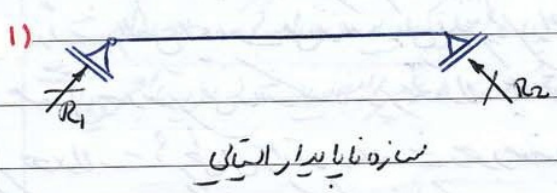 1)
R1
R2
سازه ناپایدار ایستایی